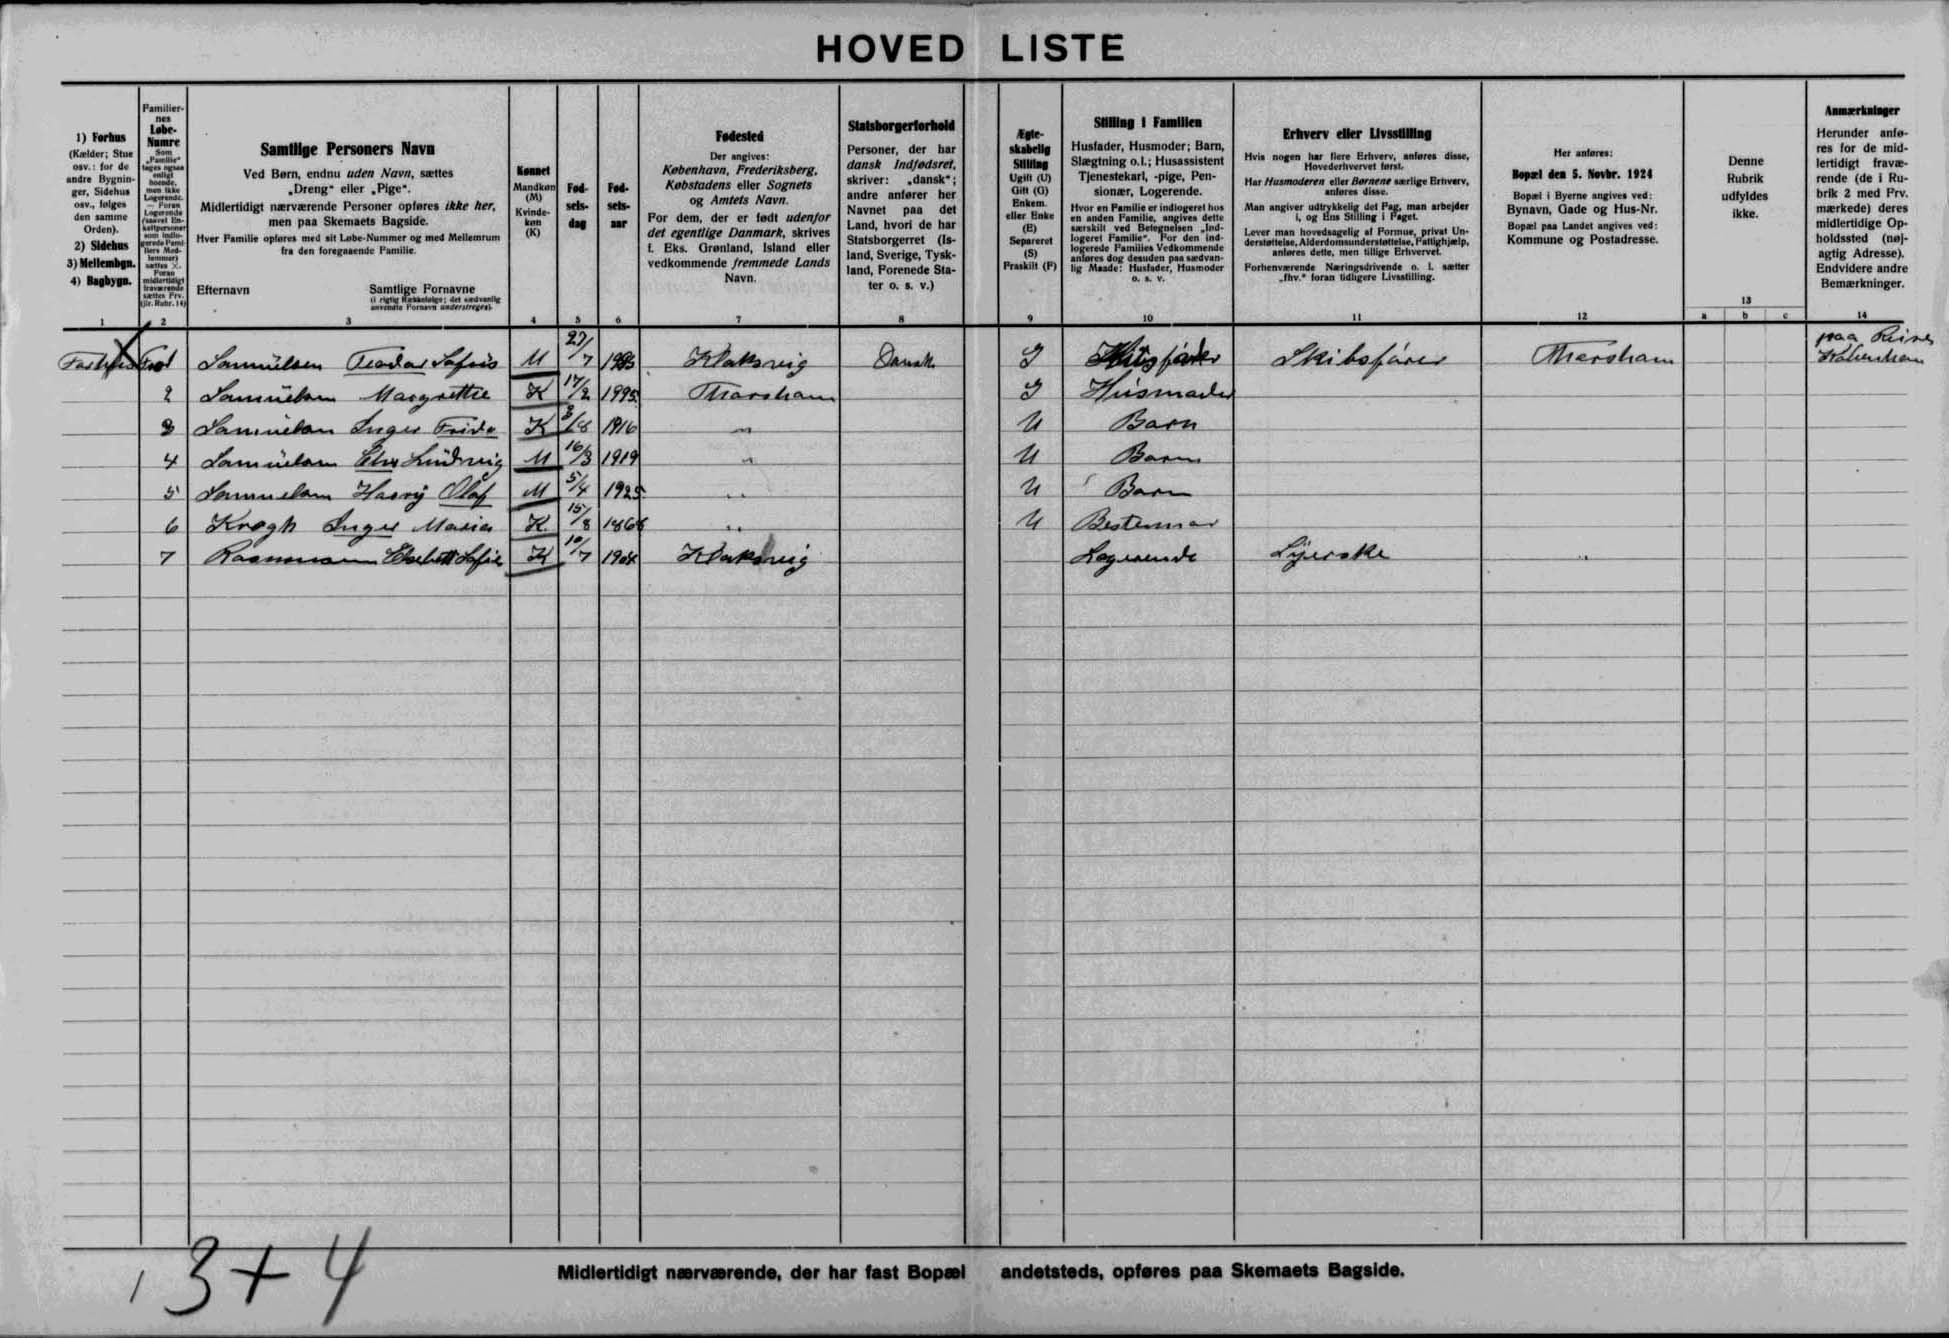 HOVED LISTE
1) Forhus
(Kælder; Stue
osv.: for de
andre Bygnin-
ger, Sidehus
osv., følges
den samme
Orden).
2) Sidehus
3) Mellembgn.
4) Bagbygn.
1
Familier-
nes
Løbe-
Numre
Som
„Familie“
tages ogsaa
enligt
boende,
men ikke
Logerende.
— Foran
Logerende
(saavel En-
keltpersoner
som indlo-
gerede Fami-
liers Med-
lemmer)
sættes ×.
Foran
midlertidigt
fraværende
sættes Frv.
(jfr. Rubr. 14)
2
Samtlige Personers Navn
Ved Børn, endnu uden Navn, sættes
„Dreng“ eller „Pige“.
Midlertidigt nærværende Personer opføres ikke her,
men paa Skemaets Bagside.
Hver Familie opføres med sit Løbe-Nummer og med Mellemrum
fra den foregaaende Familie.
Efternavn Samtlige Fornavne
(i rigtig Rækkefølge; det sædvanlig
anvendte Fornavn understreges).
3
Kønnet
Mandkøn
(M)
Kvinde-
køn
(K)
4
Fød-
sels-
dag
5
Fød-
sels-
aar
6
Fødested
Der angives:
København, Frederiksberg,
Købstadens eller Sognets
og Amtets Navn.
For dem, der er født udenfor
det egentlige Danmark, skrives
f. Eks. Grønland, Island eller
vedkommende fremmede Lands
Navn.
7
Statsborgerforhold
Personer, der har
dansk Indfødsret,
skriver: „dansk“;
andre anfører her
Navnet paa det
Land, hvori de har
Statsborgerret (Is-
land, Sverige, Tysk-
land, Forenede Sta-
ter o. s. v.)
8
Ægte-
skabelig
Stilling
Ugift (U)
Gift (G)
Enkem.
eller Enke
(E)
Separeret
(S)
Fraskilt (F)
9
Stilling i Familien
Husfader, Husmoder; Barn,
Slægtning o.l.; Husassistent
Tjenestekarl, -pige, Pen-
sionær, Logerende.
Hvor en Familie er indlogeret hos
en anden Familie, angives dette
særskilt ved Betegnelsen „Ind-
logeret Familie“. For den ind-
logerede Families Vedkommende
anføres dog desuden paa sædvan-
lig Maade: Husfader, Husmoder
o. s. v.
10
Erhverv eller Livsstilling
Hvis nogen har flere Erhverv, anføres disse,
Hovederhvervet først.
Har Husmoderen eller Børnene særlige Erhverv,
anføres disse.
Man angiver udtrykkelig det Fag, man arbejder
i, og Ens Stilling i Faget.
Lever man hovedsagelig af Formue, privat Un-
derstøttelse, Alderdomsunderstøttelse, Fattighjælp,
anføres dette, men tillige Erhvervet.
Forhenværende Næringsdrivende o. l. sætter
„fhv.“ foran tidligere Livsstilling.
11
Her anføres:
Bopæl den 5. Novbr. 1924
Bopæl i Byerne angives ved:
Bynavn, Gade og Hus-Nr.
Bopæl paa Landet angives ved:
Kommune og Postadresse.
12
Denne
Rubrik
udfyldes
ikke.
13
a b c
Anmærkninger
Herunder anfø-
res for de mid-
lertidigt fravæ-
rende (de i Ru-
brik 2 med Frv.
mærkede) deres
midlertidige Op-
holdssted (nøj-
agtig Adresse).
Endvidere andre
Bemærkninger.
14
Samuelsen M 27/7 Klaksvig Dansk G Skibsfører Thorshavn paa
2 Samuelsen K 17/2 Thorshavn G Husmoder
3 Samuelsen Inger Frida K 3/8 1916 " U Barn
4 Samuelsen Ludvig M 16/3 1919 " U Barn
5 Samuelsen Harry Olaf M 5/4 1925 " U Barn
6 Krogh Inger Maria K 15/8 1868 " U Bestemor
7 Rasmussen Elsebett Sofie K 10/7 1904 Klaksvig Logerende Syerske "
3+4
Midlertidigt nærværende, der har fast Bopæl andetsteds, opføres paa Skemaets Bagside.